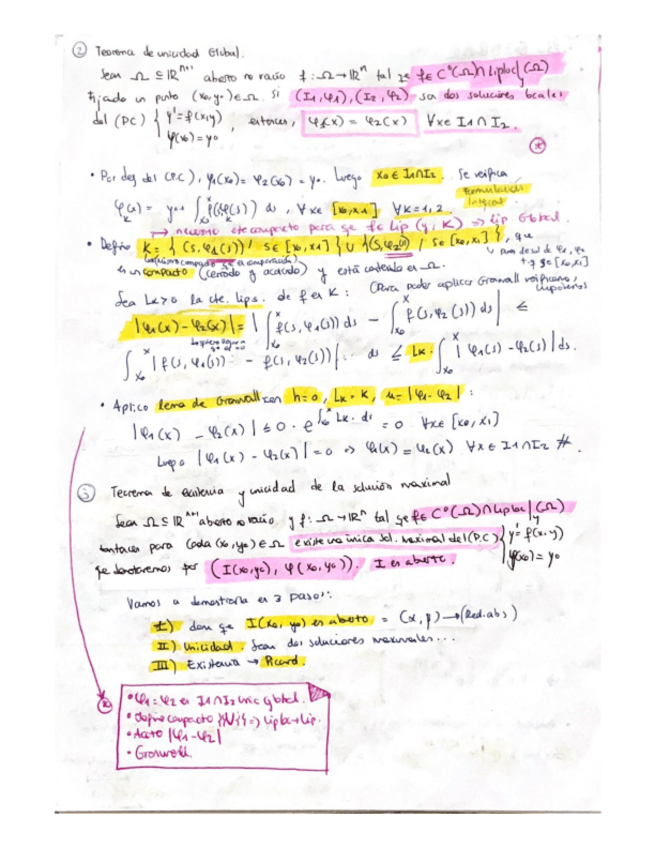 ② Teorema de unicidad Global.
Sean Ω ⊆ ℝⁿ⁺¹ abierto no vacío f: Ω → ℝⁿ tal que f ∈ C⁰(Ω) ∩ Liploc(y, Ω)
fijado un punto (x₀, y₀) ∈ Ω. Si (I₁, φ₁), (I₂, φ₂) son dos soluciones locales
del (PC) { y' = f(x,y) , entonces, φ₁(x) = φ₂(x) ∀x ∈ I₁ ∩ I₂.
y(x₀) = y₀
• Por def del (P.C), φ₁(x₀) = φ₂(x₀) = y₀. Luego x₀ ∈ I₁∩I₂. Se verifica
Formulación Integral
φₖ(x) = y₀ + ∫ₓ₀ˣ f(s, φₖ(s)) ds, ∀x ∈ [x₀, x₁] ∀k = 1, 2.
↦ necesito el compacto para que f ∈ Lip (y, K) ⇒ Lip Global.
• Defino K = { (s, φ₁(s)) / s ∈ [x₀, x₁] } ∪ { (s, φ₂(s)) / s ∈ [x₀, x₁] }, que
es un compacto (cerrado y acotado) y está contenido en Ω.
Sea Lk > 0 la cte. lips. de f en K: (Para poder aplicar Gronwall
|φ₁(x) − φ₂(x)| = | ∫ₓ₀ˣ f(s, φ₁(s)) ds − ∫ₓ₀ˣ f(s, φ₂(s)) ds | ≤
∫ₓ₀ˣ | f(s, φ₁(s)) − f(s, φ₂(s)) | ds ≤ Lk · ∫ₓ₀ˣ | φ₁(s) − φ₂(s) | ds.
• Aplico lema de Gronwall con h = 0, Lk = K, u = |φ₁ − φ₂| :
|φ₁(x) − φ₂(x)| ≤ 0 · e^∫ₓ₀ˣ Lk · ds = 0 ∀x ∈ [x₀, x₁]
Luego |φ₁(x) − φ₂(x)| = 0 ⇒ φ₁(x) = φ₂(x) ∀x ∈ I₁ ∩ I₂ #.
③ Teorema de existencia y unicidad de la solución maximal
Sean Ω ⊆ ℝⁿ⁺¹ abierto no vacío y f: Ω → ℝⁿ tal que f ∈ C⁰(Ω) ∩ Liploc(y, Ω)
entonces para cada (x₀, y₀) ∈ Ω existe una única sol. maximal del (P.C) { y' = f(x, y)
y(x₀) = y₀
que denotaremos por (I(x₀,y₀), φ(x₀, y₀)). I es abierto.
Vamos a demostrarlo en 3 pasos:
I) dem que I(x₀, y₀) es abierto = (α, β) → (Red. abs)
II) Unicidad. Sean dos soluciones maximales...
III) Existencia → Picard.
• φ₁ = φ₂ en I₁∩I₂ unic global.
• defino compacto {}∪{} ⇒ liploc → lip.
• |φ₁ − φ₂|
• Gronwall.